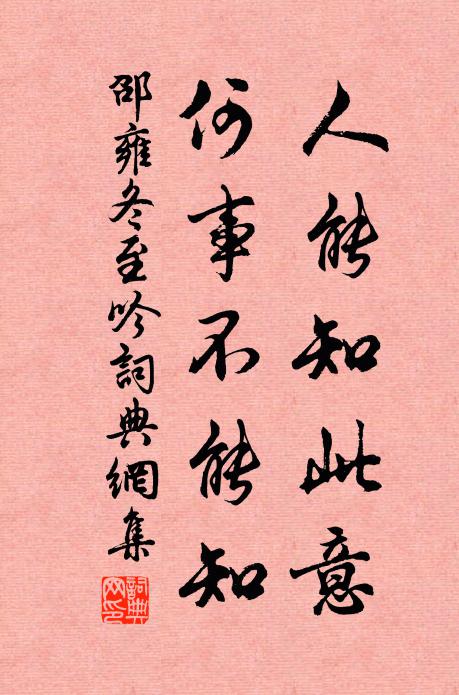 人能知此意
何事不能知
邵雍冬至吟詞典網集
詞典
网印